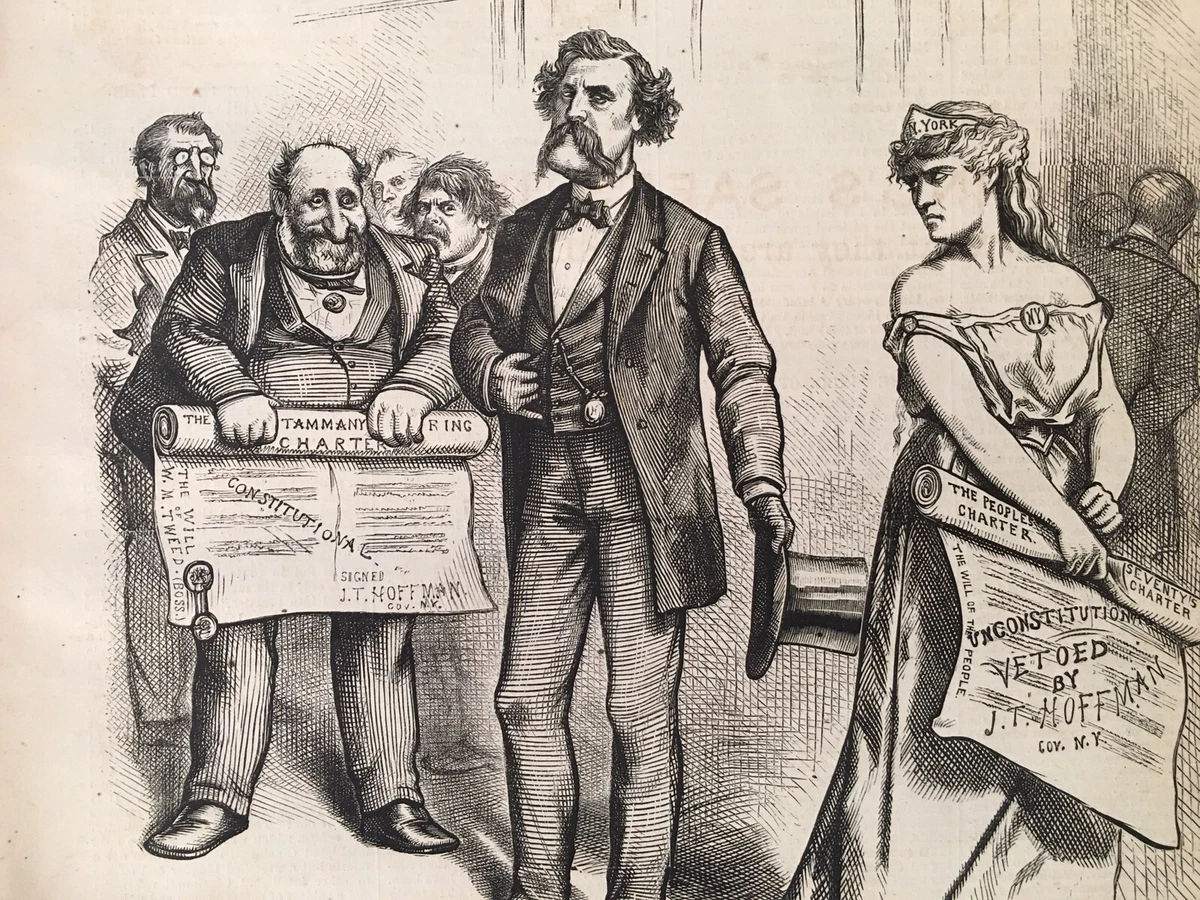 N.YORK
NY
THE TAMMANY RING
CHARTER
THE WILL
OF
W.M. TWEED (BOSS)
CONSTITUTIONAL
SIGNED
J.T. HOFFMAN
GOV. N.Y.
THE PEOPLES
CHARTER
SEVENTY'S
CHARTER
THE WILL OF THE PEOPLE
UNCONSTITUTIONAL
VETOED
BY
J.T. HOFFMAN
GOV. N.Y